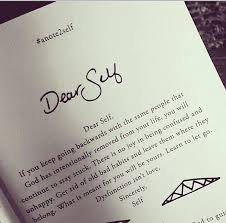 #anote2self
Dear Self
Dear Self,
If you keep going backwards with the same people that
God has intentionally removed from your life, you will
continue to stay stuck. There is no joy in being confused and
unhappy. Get rid of old bad habits and leave them where they
belong. What is meant for you will be yours. Learn to let go.
Dysfunction isn't love.
Sincerely,
Self